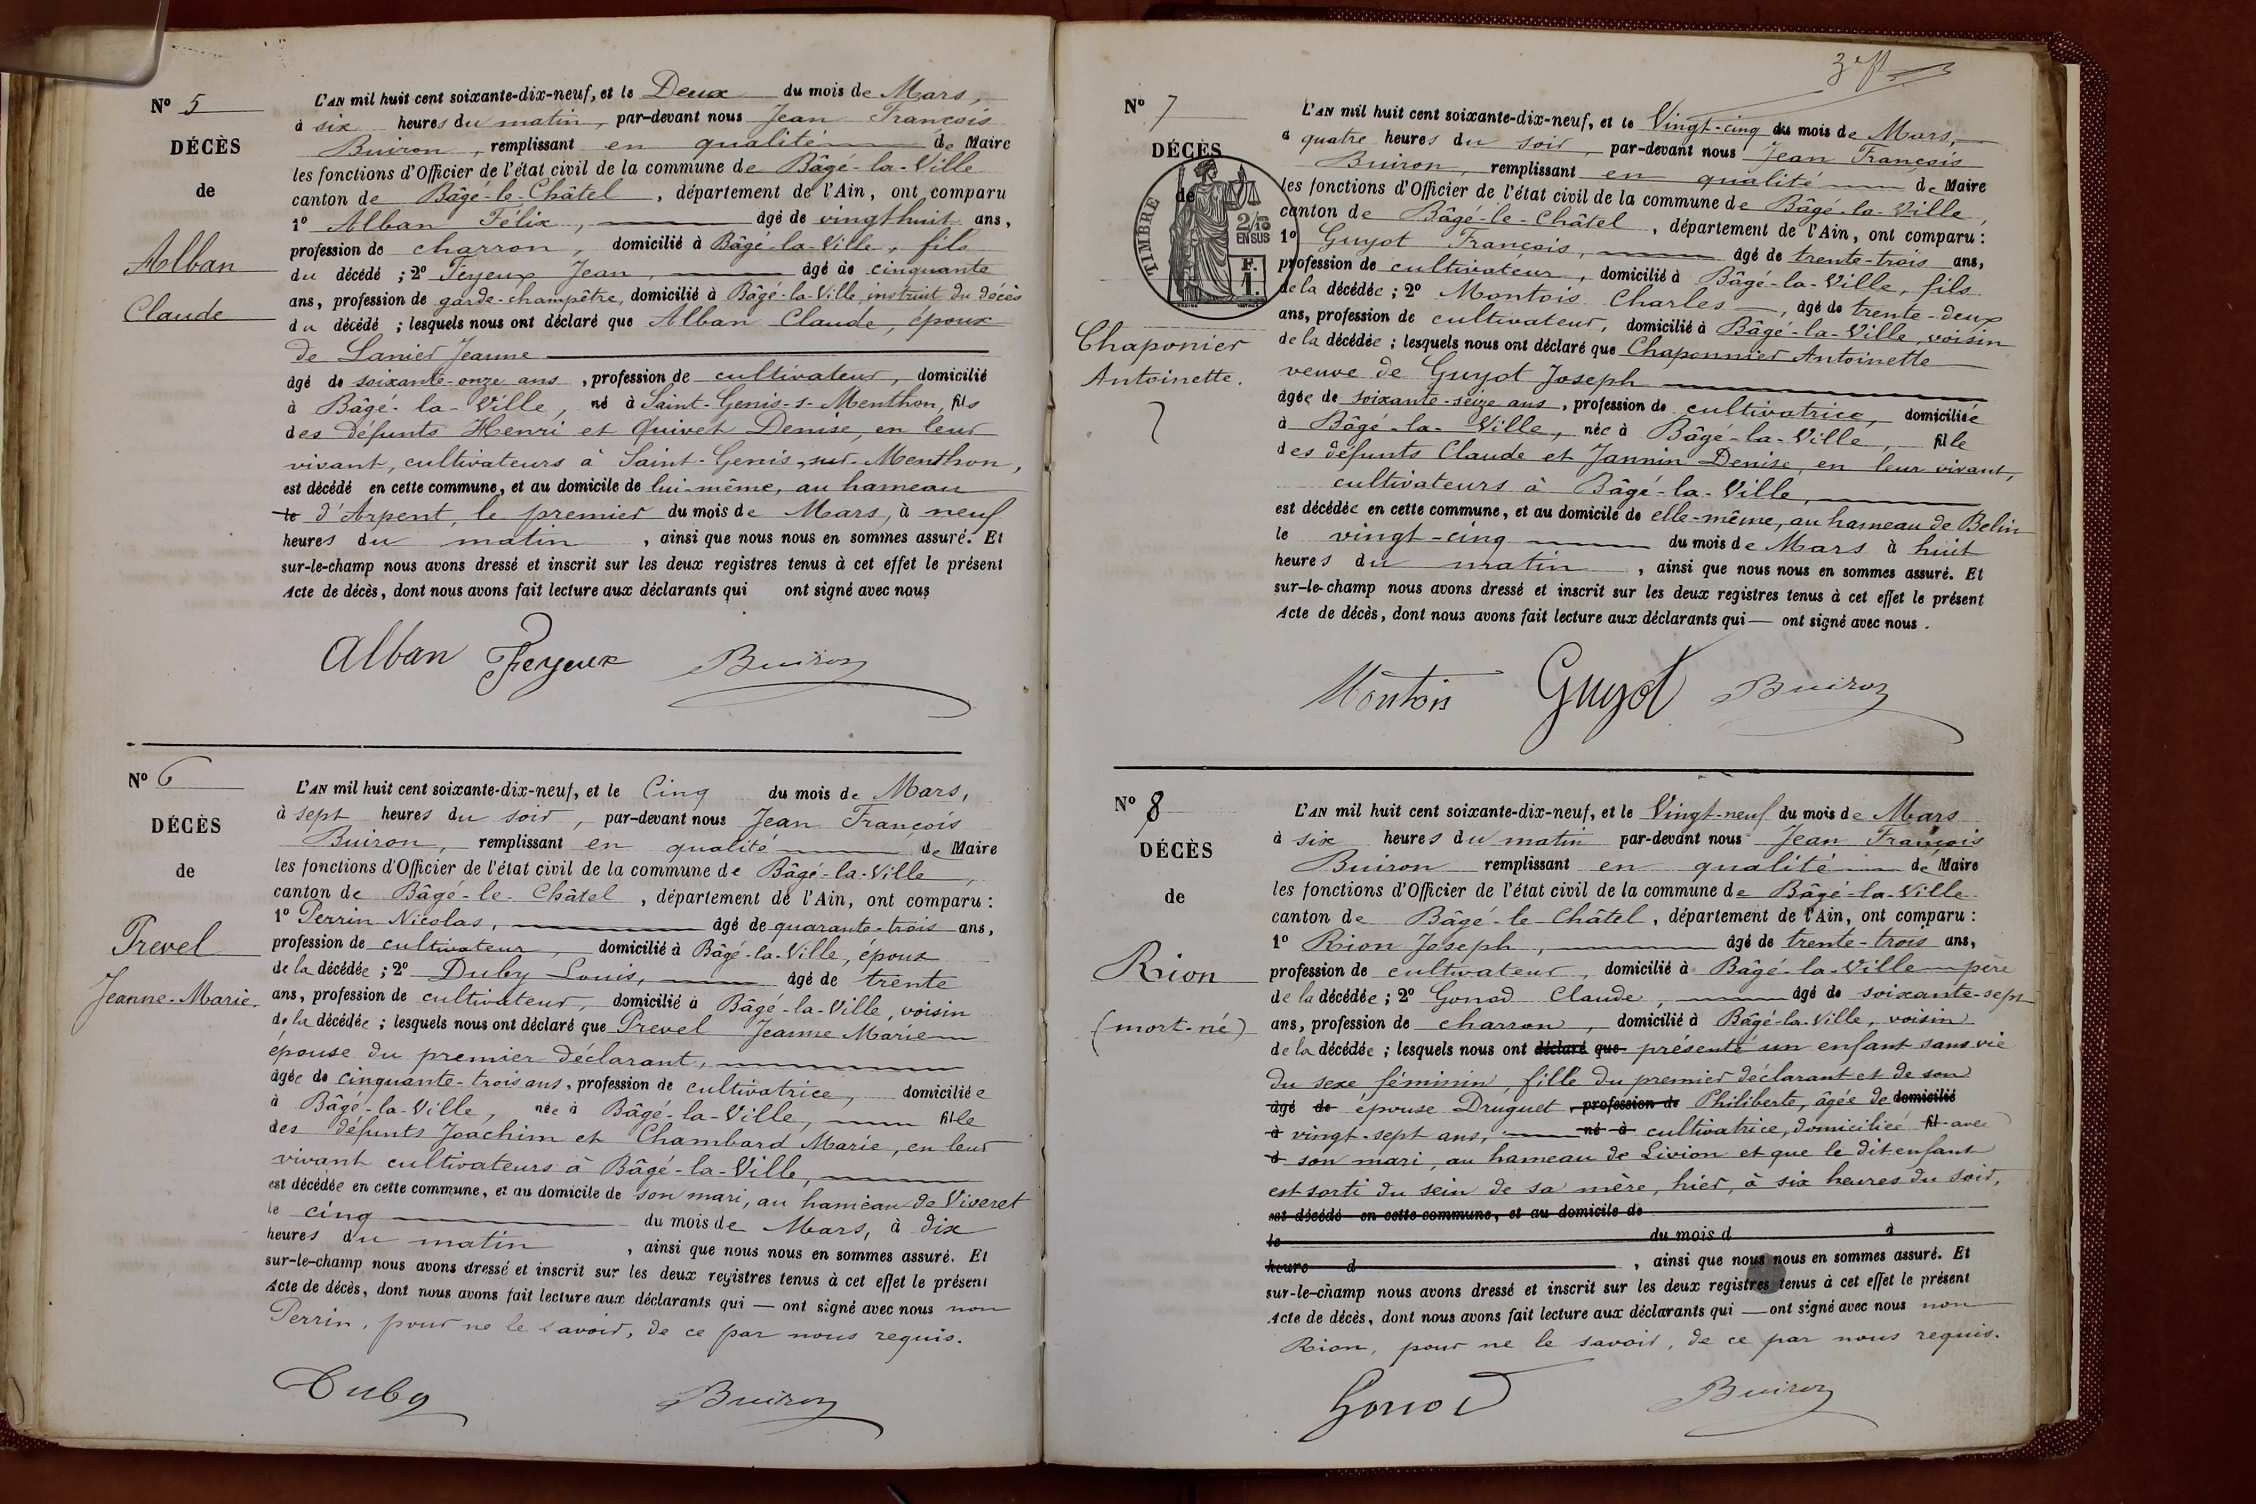 N° 5
DÉCÈS
de
Alban
Claude
L'AN mil huit cent soixante-dix-neuf, et le Deux du mois de Mars,
à six heures du matin, par-devant nous Jean François
Buiron, remplissant en qualité de Maire
les fonctions d'Officier de l'état civil de la commune de Bâgé-la-Ville
canton de Bâgé-le-Châtel, département de l'Ain, ont comparu
1° Alban Félix, âgé de vingt huit ans,
profession de charron, domicilié à Bâgé-la-Ville, fils
du décédé ; 2° Feyeux Jean, âgé de cinquante
ans, profession de garde-champêtre, domicilié à Bâgé-la-Ville instruit du décès
du décédé ; lesquels nous ont déclaré que Alban Claude, époux
de Lanier Jeanne
âgé de soixante-onze ans, profession de cultivateur, domicilié
à Bâgé-la-Ville, né à Saint-Genis-s-Menthon, fils
des défunts Henri et Quivet Denise, en leur
vivant, cultivateurs à Saint-Genis-sur-Menthon,
est décédé en cette commune, et au domicile de lui-même, au hameau
le d'Arpent, le premier du mois de Mars, à neuf
heures du matin, ainsi que nous nous en sommes assuré. Et
sur-le-champ nous avons dressé et inscrit sur les deux registres tenus à cet effet le présent
Acte de décès, dont nous avons fait lecture aux déclarants qui ont signé avec nous
Alban Feyeux Buiron
N° 6
DÉCÈS
de
Prevel
Jeanne-Marie.
L'AN mil huit cent soixante-dix-neuf, et le Cinq du mois de Mars,
à sept heures du soir, par-devant nous Jean François
Buiron, remplissant en qualité de Maire
les fonctions d'Officier de l'état civil de la commune de Bâgé-la-Ville,
canton de Bâgé-le-Châtel, département de l'Ain, ont comparu :
1° Perrin Nicolas, âgé de quarante-trois ans,
profession de cultivateur, domicilié à Bâgé-la-Ville, époux
de la décédée ; 2° Duby Louis, âgé de trente
ans, profession de cultivateur, domicilié à Bâgé-la-Ville, voisin
de la décédée ; lesquels nous ont déclaré que Prevel Jeanne Marie
épouse du premier déclarant,
âgée de cinquante-trois ans, profession de cultivatrice, domiciliée
à Bâgé-la-Ville, née à Bâgé-la-Ville, fille
des défunts Joachim et Chambard Marie, en leur
vivant cultivateurs à Bâgé-la-Ville,
est décédée en cette commune, et au domicile de son mari, au hameau de Viveret
le cinq du mois de Mars, à dix
heures du matin, ainsi que nous nous en sommes assuré. Et
sur-le-champ nous avons dressé et inscrit sur les deux registres tenus à cet effet le présent
Acte de décès, dont nous avons fait lecture aux déclarants qui — ont signé avec nous non
Perrin, pour ne le savoir, de ce par nous requis.
Duby Buiron
N° 7
DÉCÈS
de
TIMBRE
2/10
EN SUS
F.
1.
Chaponier
Antoinette.
L'AN mil huit cent soixante-dix-neuf, et le Vingt-cinq du mois de Mars,
à quatre heures du soir, par-devant nous Jean François
Buiron, remplissant en qualité de Maire
les fonctions d'Officier de l'état civil de la commune de Bâgé-la-Ville,
canton de Bâgé-le-Châtel, département de l'Ain, ont comparu :
1° Guyot François, âgé de trente-trois ans,
profession de cultivateur, domicilié à Bâgé-la-Ville, fils
de la décédée ; 2° Montois Charles, âgé de trente-deux
ans, profession de cultivateur, domicilié à Bâgé-la-Ville, voisin
de la décédée ; lesquels nous ont déclaré que Chaponnier Antoinette
veuve de Guyot Joseph
âgée de soixante-seize ans, profession de cultivatrice, domiciliée
à Bâgé-la-Ville, née à Bâgé-la-Ville, fille
des défunts Claude et Jannin Denise, en leur vivant,
cultivateurs à Bâgé-la-Ville,
est décédée en cette commune, et au domicile de elle-même, au hameau de Belin
le vingt-cinq du mois de Mars à huit
heures du matin, ainsi que nous nous en sommes assuré. Et
sur-le-champ nous avons dressé et inscrit sur les deux registres tenus à cet effet le présent
Acte de décès, dont nous avons fait lecture aux déclarants qui — ont signé avec nous.
Montois Guyot Buiron
N° 8
DÉCÈS
de
Rion
(mort-né)
L'AN mil huit cent soixante-dix-neuf, et le Vingt-neuf du mois de Mars
à six heures du matin par-devant nous Jean François
Buiron remplissant en qualité de Maire
les fonctions d'Officier de l'état civil de la commune de Bâgé-la-Ville
canton de Bâgé-le-Châtel, département de l'Ain, ont comparu :
1° Rion Joseph, âgé de trente-trois ans,
profession de cultivateur, domicilié à Bâgé-la-Ville père
de la décédée ; 2° Gonod Claude, âgé de soixante-sept
ans, profession de charron, domicilié à Bâgé-la-Ville, voisin
de la décédée ; lesquels nous ont déclaré que présenté un enfant sans vie
du sexe féminin, fille du premier déclarant et de son
âgé de épouse Druguet, profession de Philiberte, âgée de domicilié
à vingt-sept ans, né à cultivatrice, domiciliée fil avec
d son mari, au hameau de Livion et que le dit enfant
est sorti du sein de sa mère, hier, à six heures du soir,
est décédé en cette commune, et au domicile de
le du mois d à
heure d, ainsi que nous nous en sommes assuré. Et
sur-le-champ nous avons dressé et inscrit sur les deux registres tenus à cet effet le présent
Acte de décès, dont nous avons fait lecture aux déclarants qui — ont signé avec nous non
Rion, pour ne le savoir, de ce par nous requis.
Gonod Buiron